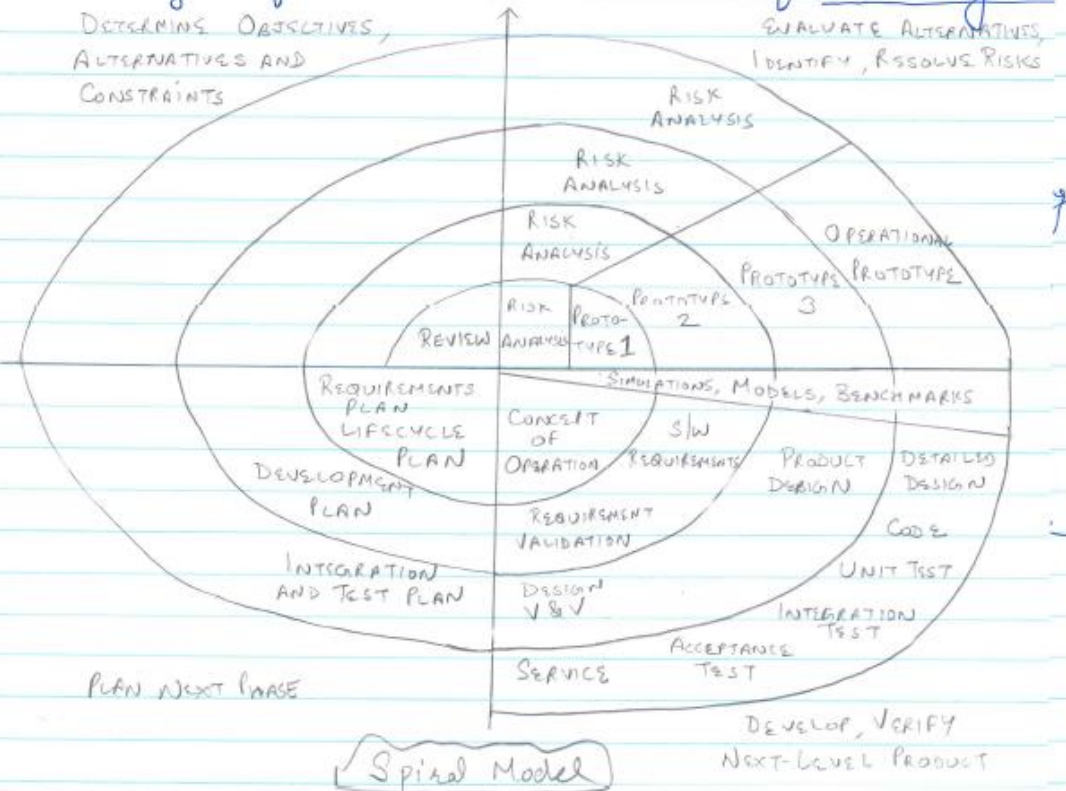 DETERMINE OBJECTIVES,
ALTERNATIVES AND
CONSTRAINTS
EVALUATE ALTERNATIVES,
IDENTIFY, RESOLVE RISKS
RISK
ANALYSIS
RISK
ANALYSIS
RISK
ANALYSIS
RISK
ANALYSIS
REVIEW
PROTO-
TYPE 1
PROTOTYPE
2
PROTOTYPE
3
OPERATIONAL
PROTOTYPE
SIMULATIONS, MODELS, BENCHMARKS
REQUIREMENTS
PLAN
LIFECYCLE
PLAN
CONCEPT
OF
OPERATION
S/W
REQUIREMENTS
PRODUCT
DESIGN
DETAILED
DESIGN
DEVELOPMENT
PLAN
REQUIREMENT
VALIDATION
CODE
UNIT TEST
INTEGRATION
AND TEST PLAN
DESIGN
V & V
INTEGRATION
TEST
ACCEPTANCE
TEST
SERVICE
PLAN NEXT PHASE
DEVELOP, VERIFY
NEXT-LEVEL PRODUCT
Spiral Model